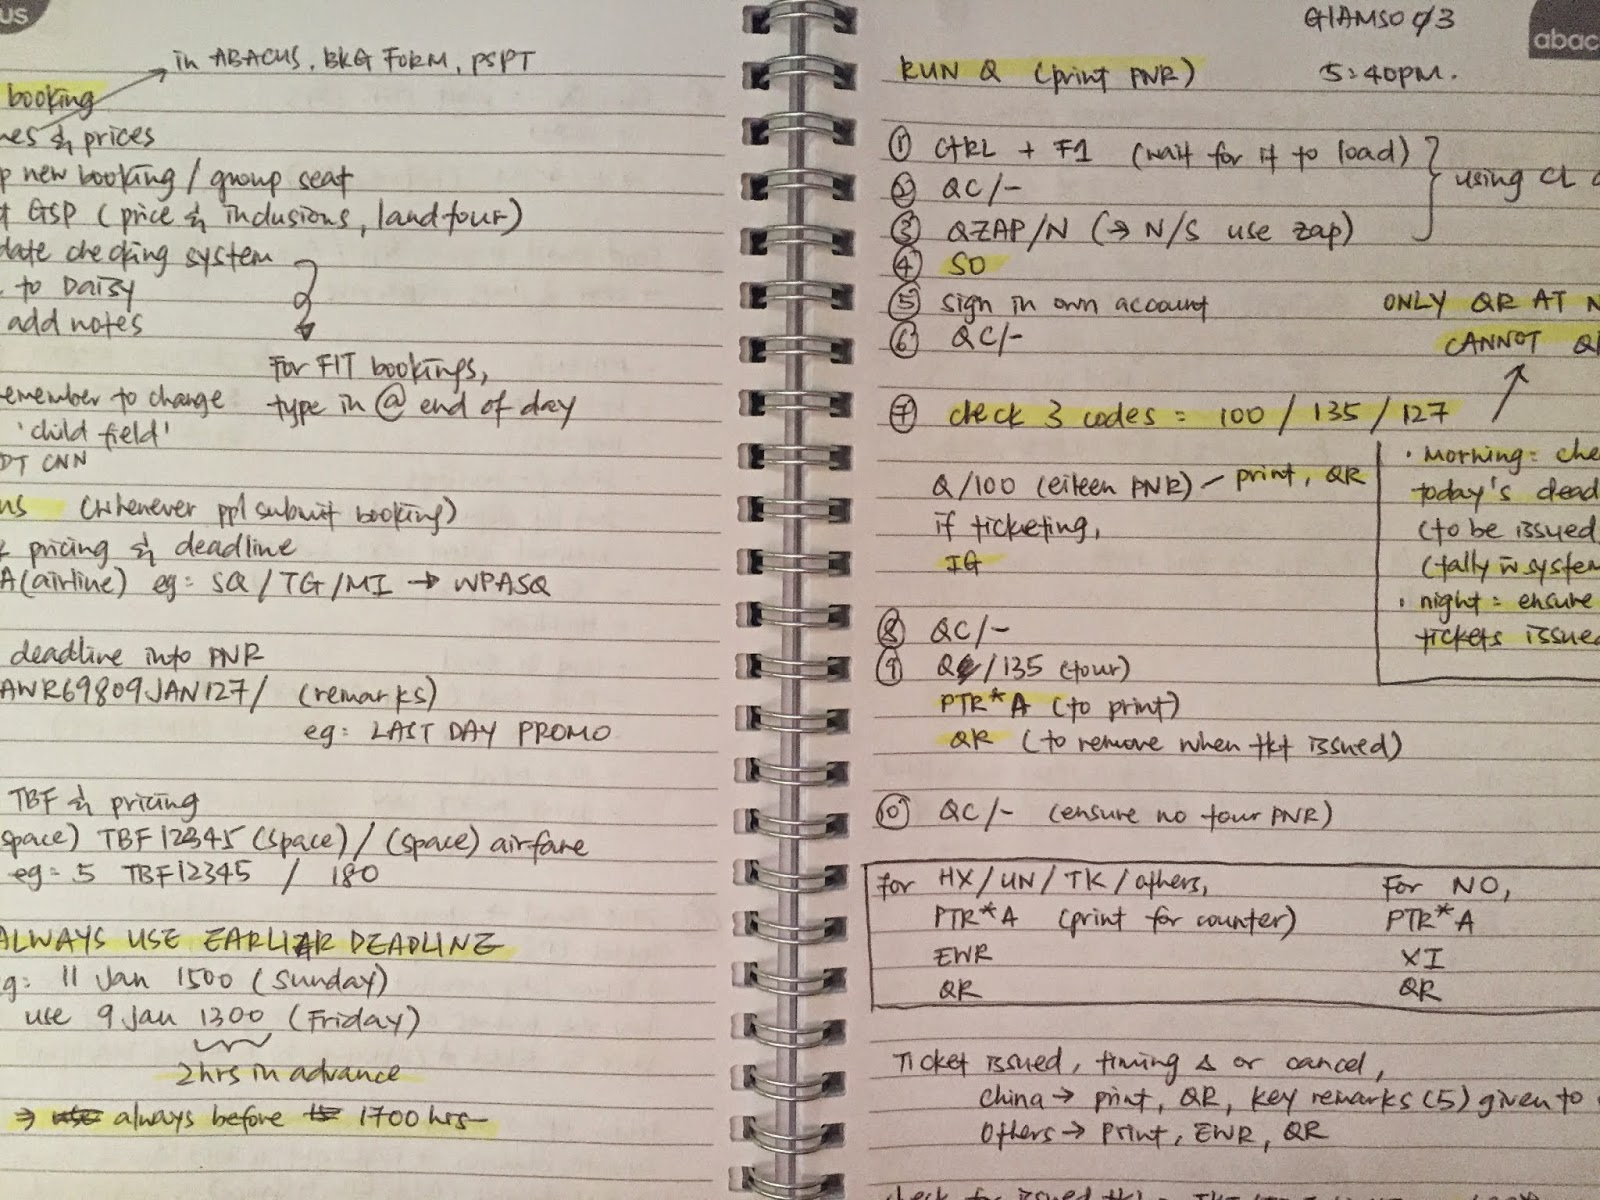 us
in ABACUS, BKG FORM, PSPT
booking
nes & prices
p new booking / group seat
t GSP (price & inclusions, landtour)
date checking system
. to Daisy
add notes
For FIT bookings,
type in @ end of day
emember to change
'child field'
DT CNN
us (whenever ppl submit booking)
& pricing & deadline
A(airline) eg: SQ / TG / MI → WPASQ
deadline into PNR
AWR69809JAN127/ (remarks)
eg: LAST DAY PROMO
TBF & pricing
space) TBF12345 (space) / (space) airfare
eg: 5 TBF12345 / 180
ALWAYS USE EARLIER DEADLINE
g: 11 Jan 1500 (Sunday)
use 9 Jan 1300 (Friday)
2hrs in advance
⇒ always before 1700 hrs
abac
5:40PM.
RUN Q (print PNR)
① CTRL + F1 (wait for it to load)
② QC/-
③ QZAP/N (→ N/S use zap)
using CL
④ SO
⑤ sign in own account
⑥ QC/-
ONLY QR AT N
CANNOT Q
⑦ check 3 codes = 100 / 135 / 127
Q/100 (eileen PNR) - print, QR
if ticketing,
IG
· Morning: che
today's dead
(to be issued
(tally w system
· night: ensure
tickets issued
⑧ QC/-
⑨ Q/135 (tour)
PTR*A (to print)
QR (to remove when tkt issued)
⑩ QC/- (ensure no tour PNR)
For HX/UN/TK/others,
PTR*A (print for counter)
EWR
QR
For NO,
PTR*A
XI
QR
Ticket issued, timing Δ or cancel,
China → print, QR, key remarks (5) given to
Others → print, EWR, QR